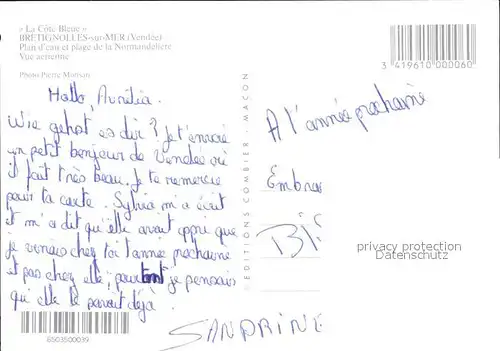 « La Côte Bleue »
BRETIGNOLLES-sur-MER (Vendée)
Plan d'eau et plage de la Normandelière
Vue aérienne
Photo Pierre
Hallo, Aurélia.
Wie gehot es dir ? Je t'envoie
un petit bonjour de Vendée où
il fait très beau. Je te remercie
pour ta carte. Sylvia m'a écrit
et m'a dit qu'elle avait appri que
je venais chez toi l'année prochaine
et pas chez elle, pourtant je pensais
qu'elle le savait déjà.
6503500039
EDITIONS COMBIER - MACON
3 419610 000060
A l'année prochaine
Embras
Bi
SANDRINE
privacy protection
Datenschutz